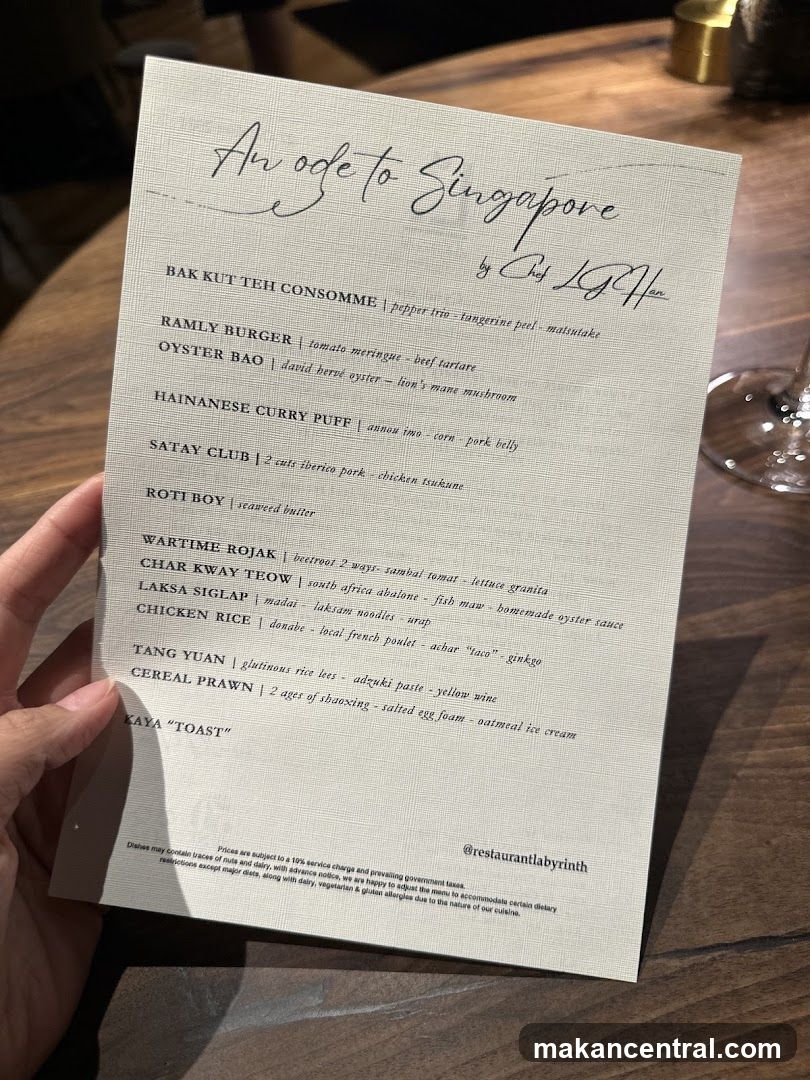 An ode to Singapore
by Chef LG Han
BAK KUT TEH CONSOMME | pepper trio - tangerine peel - matsutake
RAMLY BURGER | tomato meringue - beef tartare
OYSTER BAO | david hervé oyster – lion's mane mushroom
HAINANESE CURRY PUFF | annou imo - corn - pork belly
SATAY CLUB | 2 cuts iberico pork - chicken tsukune
ROTI BOY | seaweed butter
WARTIME ROJAK | beetroot 2 ways- sambal tomat - lettuce granita
CHAR KWAY TEOW | south africa abalone - fish maw - homemade oyster sauce
LAKSA SIGLAP | madai - laksam noodles - urap
CHICKEN RICE | donabe - local french poulet - achar "taco" - ginkgo
TANG YUAN | glutinous rice lees - adzuki paste - yellow wine
CEREAL PRAWN | 2 ages of shaoxing - salted egg foam - oatmeal ice cream
KAYA "TOAST"
@restaurantlabyrinth
Prices are subject to a 10% service charge and prevailing government taxes.
Dishes may contain traces of nuts and dairy, with advance notice, we are happy to adjust the menu to accommodate certain dietary
restrictions except major diets, along with dairy, vegetarian & gluten allergies due to the nature of our cuisine.
makancentral.com